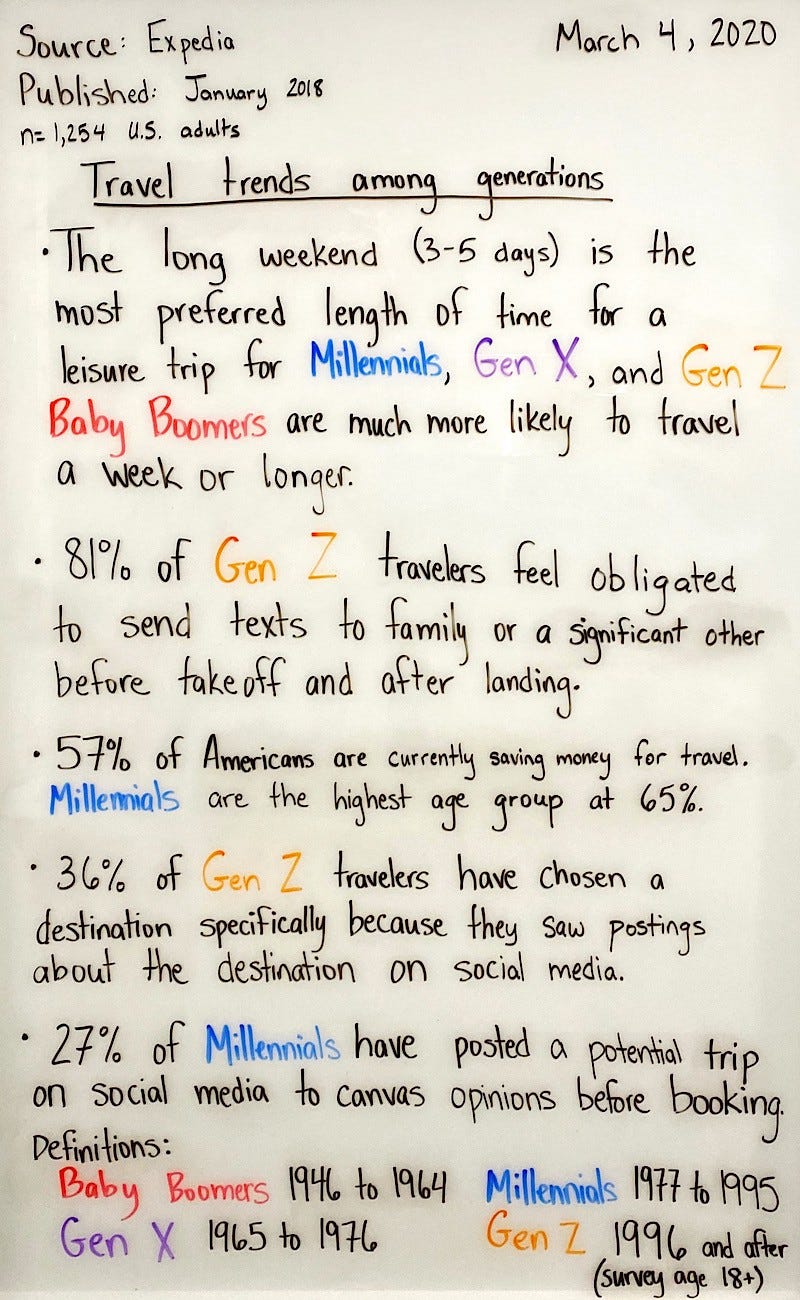 Source: Expedia
March 4, 2020
Published: January 2018
n=1,254 U.S. adults
Travel trends among generations
• The long weekend (3-5 days) is the
most preferred length of time for a
leisure trip for Millennials, Gen X, and Gen Z
Baby Boomers are much more likely to travel
a week or longer.
• 81% of Gen Z travelers feel obligated
to send texts to family or a significant other
before takeoff and after landing.
• 57% of Americans are currently saving money for travel.
Millennials are the highest age group at 65%.
• 36% of Gen Z travelers have chosen a
destination specifically because they saw postings
about the destination on social media.
• 27% of Millennials have posted a potential trip
on social media to canvas opinions before booking.
Definitions:
Baby Boomers 1946 to 1964
Millennials 1977 to 1995
Gen X 1965 to 1976
Gen Z 1996 and after
(survey age 18+)